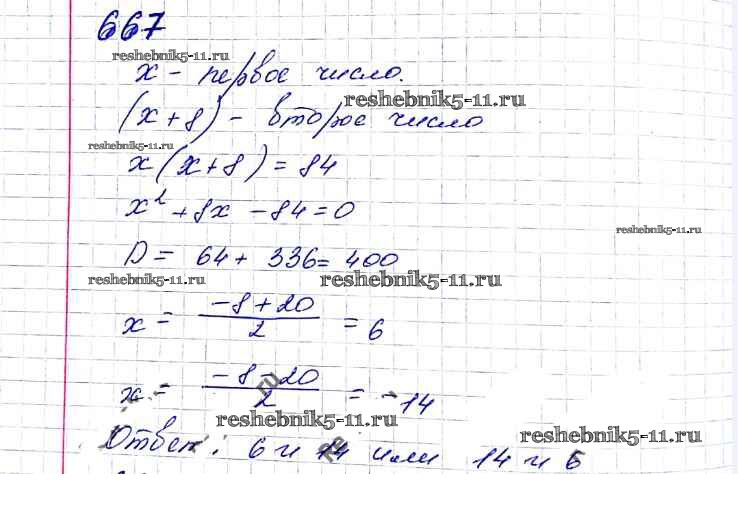 667
reshebnik5-11.ru
x - первое число.
reshebnik5-11.ru
(x+8) - второе число
reshebnik5-11.ru
x(x+8)=84
x²+8x-84=0
reshebnik5-11.ru
D= 64+ 336= 400
reshebnik5-11.ru
reshebnik5-11.ru
x = (-8+20)/2 = 6
x = (-8-20)/2 = -14
reshebnik5-11.ru
reshebnik5-11.ru
Ответ: 6 и 14 или 14 и 6